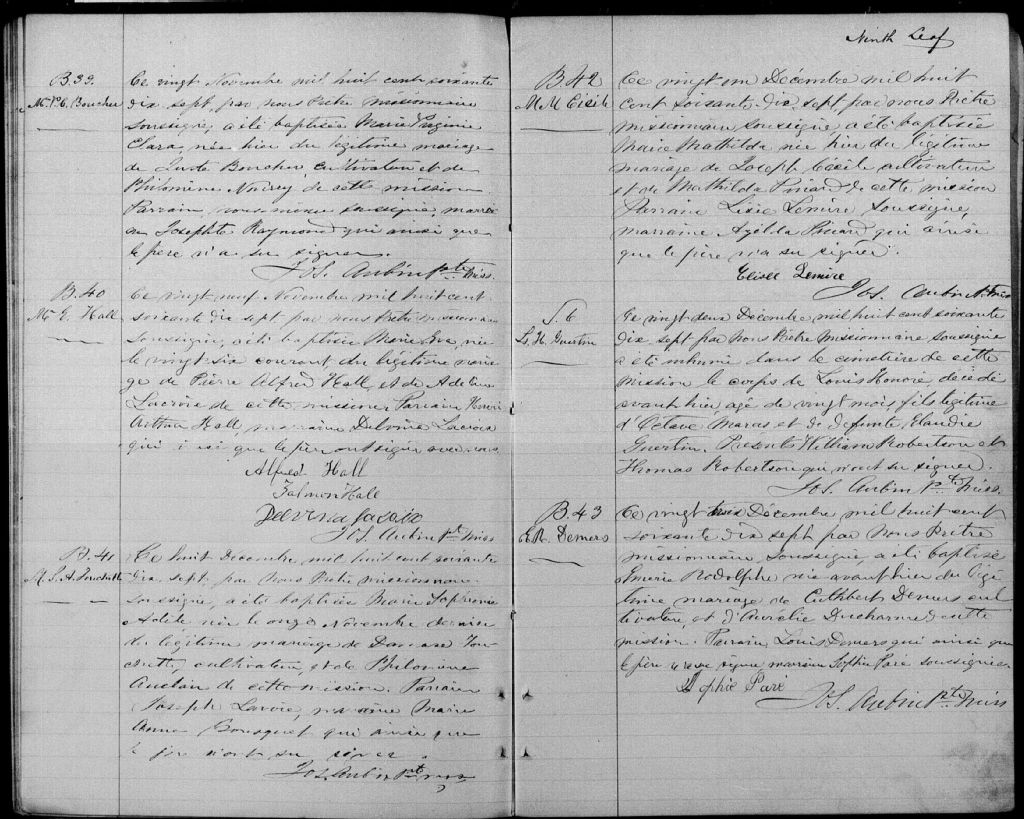 B.39.
M. V. C. Boucher
Ce vingt Novembre mil huit cent soixante
dix sept, par nous Prêtre missionnaire
soussigné, a été baptisée Marie Virginie
Clara, née hier du légitime mariage
de Juste Boucher cultivateur et de
Philomène de cette mission
Parrain, nous même soussigné, marrai
ne Josephte Raymond qui ainsi que
le père n'a su signer.
Jos. Aubin ptre Miss.
B.40
M. E. Hall
Ce vingt neuf Novembre mil huit cent
soixante dix sept par nous Prêtre missionnaire
soussigné, a été baptisée Marie Eva, née
le vingt six courant du légitime maria
ge de Pierre Alfred Hall, et de Adeline
Lacroix de cette mission, Parrain Henri
Arthur Hall, marraine Delvina Lacroix
qui ainsi que le père ont signé avec nous.
Alfred Hall
Hall
Delvena Lacroix
Jos. Aubin pt Miss
B.41
M. S. A. Touchette
Ce huit Decembre mil huit cent soixante
dix sept, par nous Prêtre missionnaire
soussigné, a été baptisée Marie Sophronie
Adèle née le onze Novembre dernier
du légitime mariage de Damase Tou
chette, cultivateur, et de Philomène
Auclair de cette mission. Parrain
Joseph Lavoie, marraine Marie
Anne Bousquet qui ainsi que
le père n'ont su signer.
Jos. Aubin pt miss
Ninth Leaf
B.42
M. M. Cécile
Ce vingt un Décembre mil huit
cent soixante dix sept, par nous Prêtre
missionnaire soussigné a été baptisée
Marie Mathilda née hier du légitime
mariage de Joseph Cécile cultivateur
et de Mathilda Pinard de cette mission
Parrain Lemire soussigné,
marraine Azilda Pinard qui ainsi
que le père n'a su signer.
Lemire
Jos. Aubin Pt. miss
S. 6
L. H. Guertin
Ce vingt deux Décembre mil huit cent soixante
dix sept par nous Prêtre Missionnaire soussigné
a été inhumé dans le cimetière de cette
mission le corps de Louis Honoré, décédé
avant hier, agé de vingt mois fils légitime
d'Octave Maras et de défunte Elaudie
Guertin. Presents William Robertson et
Thomas Robertson qui n'ont su signer.
Jos. Aubin Pt. Miss.
B.43
E. R. Demers
Ce vingt Décembre mil huit cent
soixante dix sept par nous Prêtre
missionnaire soussigné, a été baptisé
Emerie Rodolphe née avant hier du légi
time mariage de Cuthbert Demers cul
tivateur, et d'Aurélie Ducharme de cette
mission. Parrain, Louis Demers qui ainsi que
le père n'a su signer marraine Sophie Paré soussignée
Sophie Paré
Jos. Aubin Ptre Miss